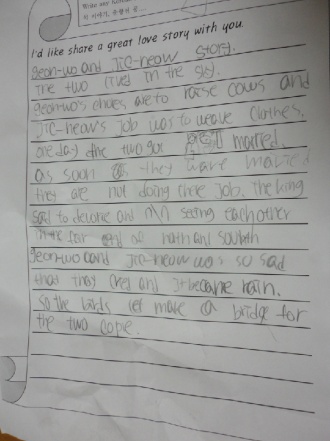 I'd like share a great love story with you.
geon-wo and JIC-neow story.
The two lived in the sky.
geon-wo's are to raise cows and
JIC-neow's job was to weave clothes.
one day the two got married
as soon as they were married
they are not doing there job. The king
said to and seeing each other
in the far end of and
geon-wo and Jic-neow was so sad
that they cry and it became rain.
So the birds let make a bridge for
the two cople.